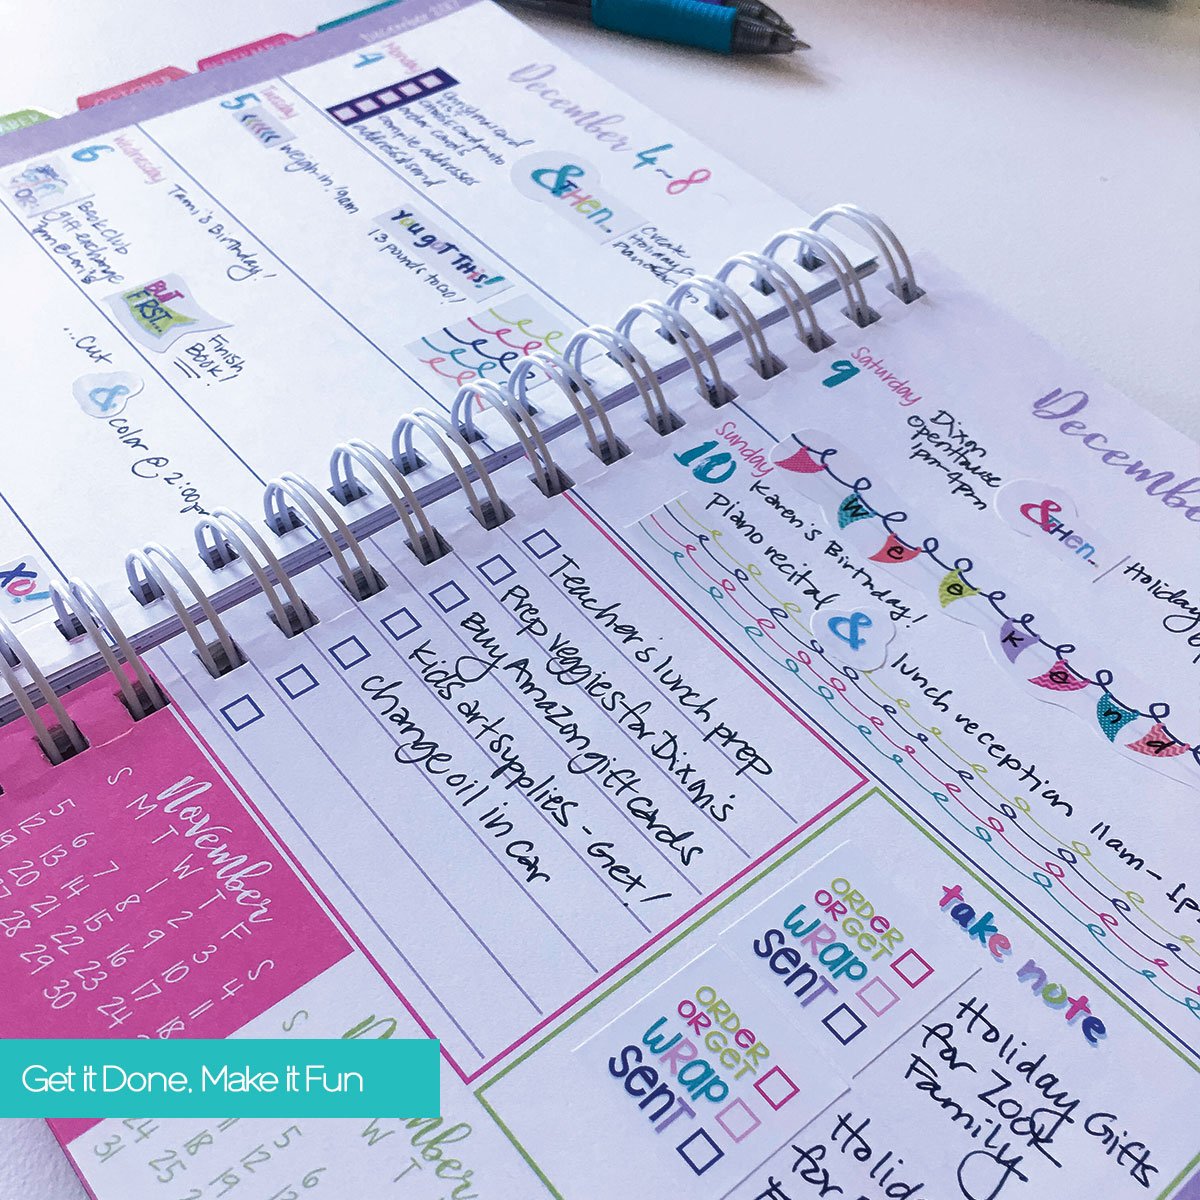 December 4-8
Monday
4
Christmas card
order cards
compile addresses
address & send
& THEN...
Create
Holiday
Tuesday
5
weigh-in 10am
YOU GOT THIS!
13 pounds to go!
Wednesday
6
Tami's Birthday!
Book club
gift exchange
BUT
FIRST...
Finish
Book!
...cut
&
color @ 2:00pm
XO!
OCTOBER
December
Saturday
9
Dixon
open house
1pm-4pm
& THEN...
Holiday
weekend
Sunday
10
Karen's Birthday!
Piano recital
&
lunch reception 11am-1p
Teacher's lunch prep
Prep veggies for Dixon's
Buy Amazon gift cards
Kids art supplies - Get!
change oil in car
November
S M T W T F S
1 2 3 4
5 6 7 8 9 10 11
12 13 14 15 16 17 18
19 20 21 22 23 24
27 28 29 30
take note
ORDER
OR GET
WRAP
SENT
Holiday Gifts
for Zook
Family
ORDER
OR GET
WRAP
SENT
Get it Done, Make it Fun